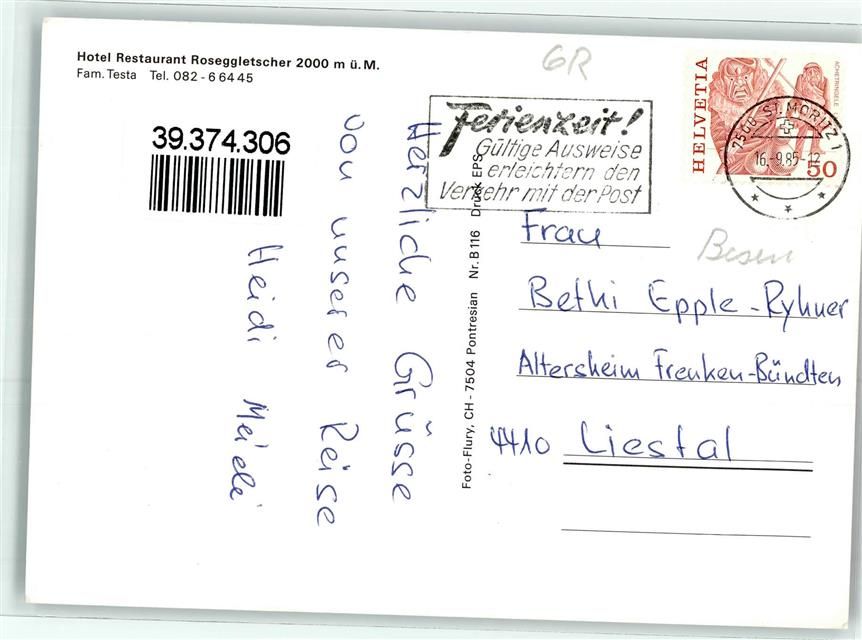 Hotel Restaurant Roseggletscher 2000 m ü. M.
Fam. Testa Tel. 082 - 6 64 45
39.374.306
Herzliche Grüsse
von unserer Reise
Heidi
Foto-Flury, CH - 7504 Pontresian Nr. B 116 Druck EPS
GR
Ferienzeit!
Gültige Ausweise
erleichtern den
Verkehr mit der Post
HELVETIA
ACHETRINGELE
50
7500 ST. MORITZ 1
16.-9.85-12
Frau
Bethi Epple-Ryhner
Altersheim Frenken-Bündten
4410 Liestal